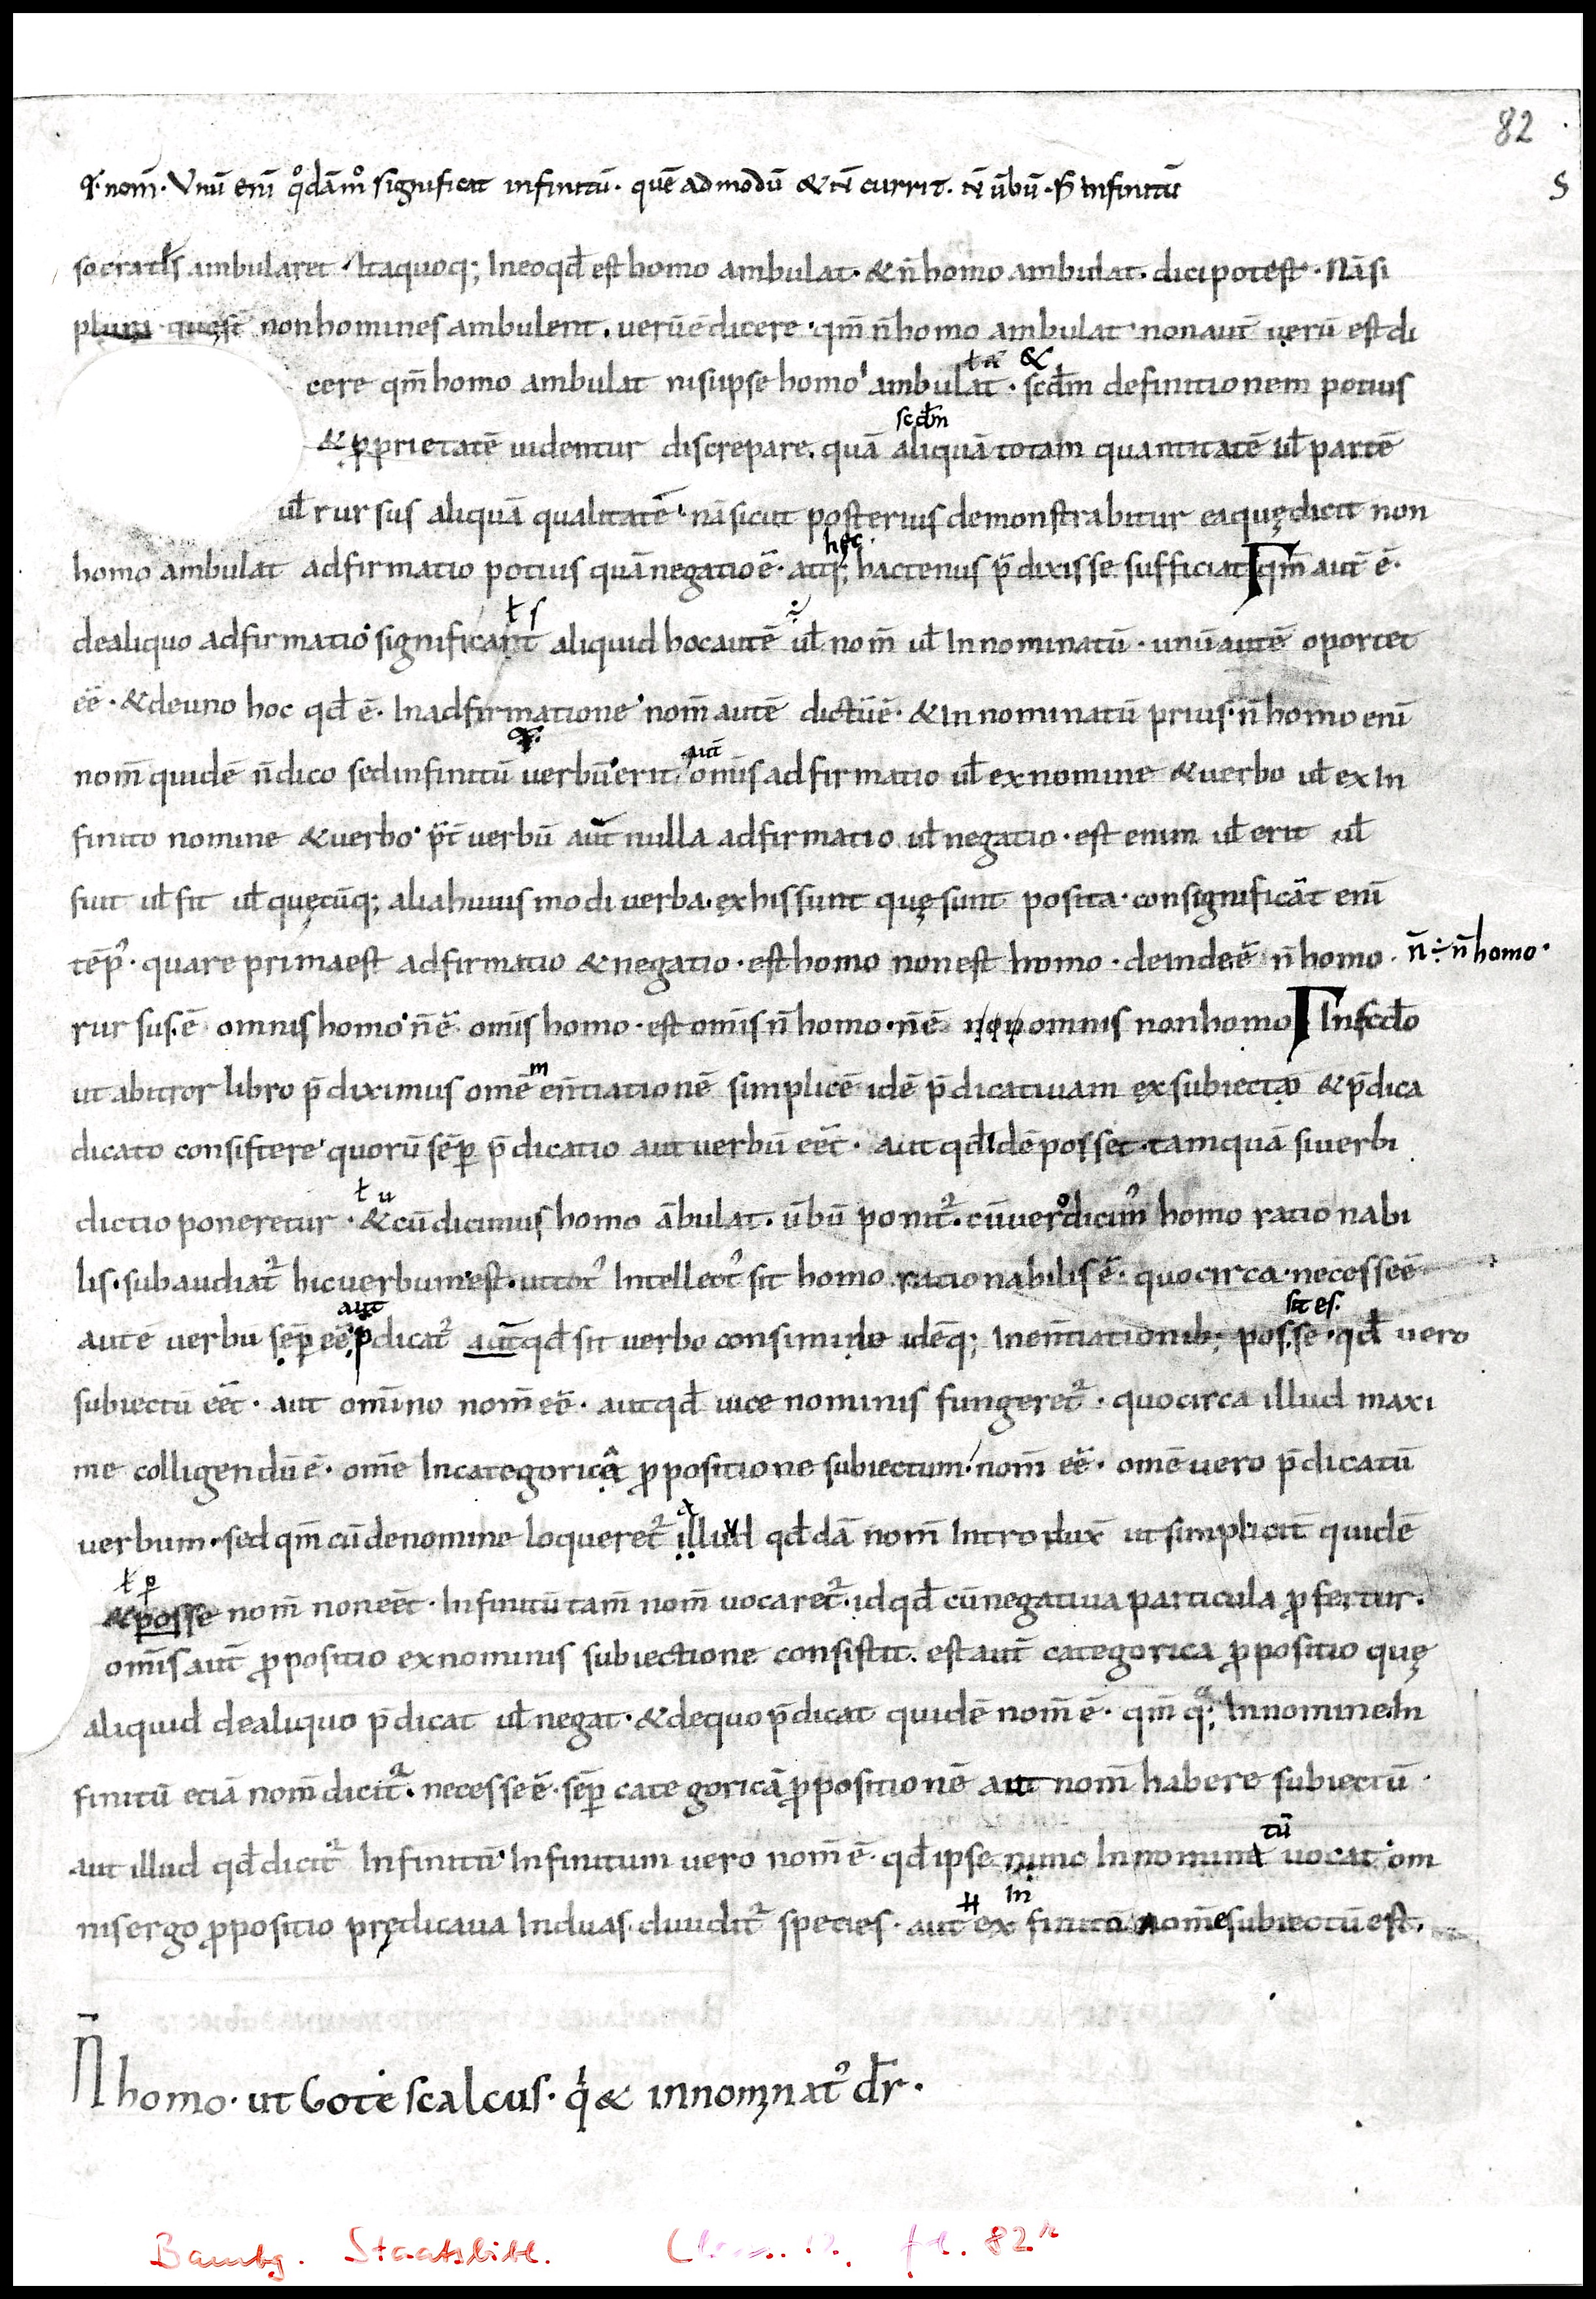 82
ꝙ· nom̄· Vnū eni̅ qͦdāmͦ significat infinitū· quē admodū & n̄ currit· n̄ ūbū· sꝫ infinitū
S
socrates ambularet· Itaquoq; Ineoqđ est homo ambulat· & n̄ homo ambulat· dici potest· Nā si
nonhomines ambulent· uerū ē dicere· qm̄ n̄ homo ambulat· nonaut̄ uerū est di
cere qm̄ homo ambulat nisi ipse homo ambulat· scđm definitionem potius
&
& ꝓprietatē uidentur discrepare· quā aliquā totam quantitatē ul̄ partē
scđm
ul̄ rursus aliquā qualitatē· nā sicut posterius demonstrabitur ea quę dicit non
homo ambulat adfirmatio potius quā negatio ē· atq; hactenus p̄dixisse sufficiat qm̄ aut̄ ē·
hęc·
dealiquo adfirmatio significant aliquid hoc autē ul̄ nom̄ ul̄ Innominatū· unū autē oportet
ł s
ēē· & deuno hoc qđ ē· Inadfirmatione· nom̄ autē dictū ē· & Innominatū prius· n̄ homo eni̅
nom̄ quidē n̄ dico sed infinitū uerbū erit omīs adfirmatio ul̄ ex nomine & uerbo ul̄ ex In
aut̄
finito nomine & uerbo· p̄t̄ verbū aut̄ nulla adfirmatio ul̄ negatio· est enim ul̄ erit ul̄
fuit ul̄ fit ul̄ quęcūq; alia huius modi uerba· ex his sunt quę sunt posita· consignificāt eni̅
tēp᾿· quare prima est adfirmatio & negatio· est homo non est homo· deinde ē n̄ homo· n̄ ÷ n̄ homo·
rursus· ē omnis homo· n̄ ē omīs homo· est omīs n̄ homo· n̄ ē non omnis nonhomo Inscđo
ut abitror libro p̄diximus omē en̄tiationē simplicē idē p̄dicatiuam ex subiecto & p̄dica
m
dicato consistere· quorū sēꝑ p̄dicatio aut uerbū eēt· aut qđ idē posset· tamquā si uerbi
dictio poneretur· & cū dicimus homo ābulat· ūbū ponit᾿· cū uero dicim᾿ homo rationabi
ł u
lis· subaudiat᾿ hic uerbum est· ut tot᾿ Intellect᾿ sit homo rationabilis ē· quocirca· necesse ē
autē uerbū sēꝑ ēē p̄dicat᾿ aut qđ sit uerbo consimile idēq; Inen̄tiationib; posse· qđ vero
aut
sit es·
subiectū eēt· aut omīno nom̄ ēē· aut qđ uice nominis fungeret᾿· quocirca illud maxi
me colligendū ē· omē Incategorica ꝓpositione subiectum· nom̄ ēē· omē uero p̄dicatū
uerbum· sed qm̄ cū denomine loqueret᾿ illud qđdā nom̄ Introdux̄ ut simplicit̄ quidē
& posse nom̄ non eēt· Infinitū tam̄ nom̄ uocaret᾿· id qđ cū negatiua particula ꝓfertur·
ł ꝑ
omīs aut̄ ꝓpositio ex nominis subiectione consistit· est aut̄ categorica ꝓpositio quę
aliquid dealiquo p̄dicat ul̄ negat· & dequo p̄dicat quidē nom̄ ē· qm̄ q; Innomine In
finitū etiā nom̄ dicit᾿· necesse ē· sēꝑ categoricā ꝓpositionē aut nom̄ habere subiectū·
aut illud qđ dicit᾿ Infinitū· Infinitum uero nom̄ ē· qđ ipse nunc Innomina uocat· om
tū
nis ergo ꝓpositio prędicaua Induas diuidit᾿ species· aut ex finito nome subiectū est·
In
N̄ homo· ut Gotescalcus· q̇ & innominat᾿ dr̄·
Bambg. Staatsbibl. fol. 82r